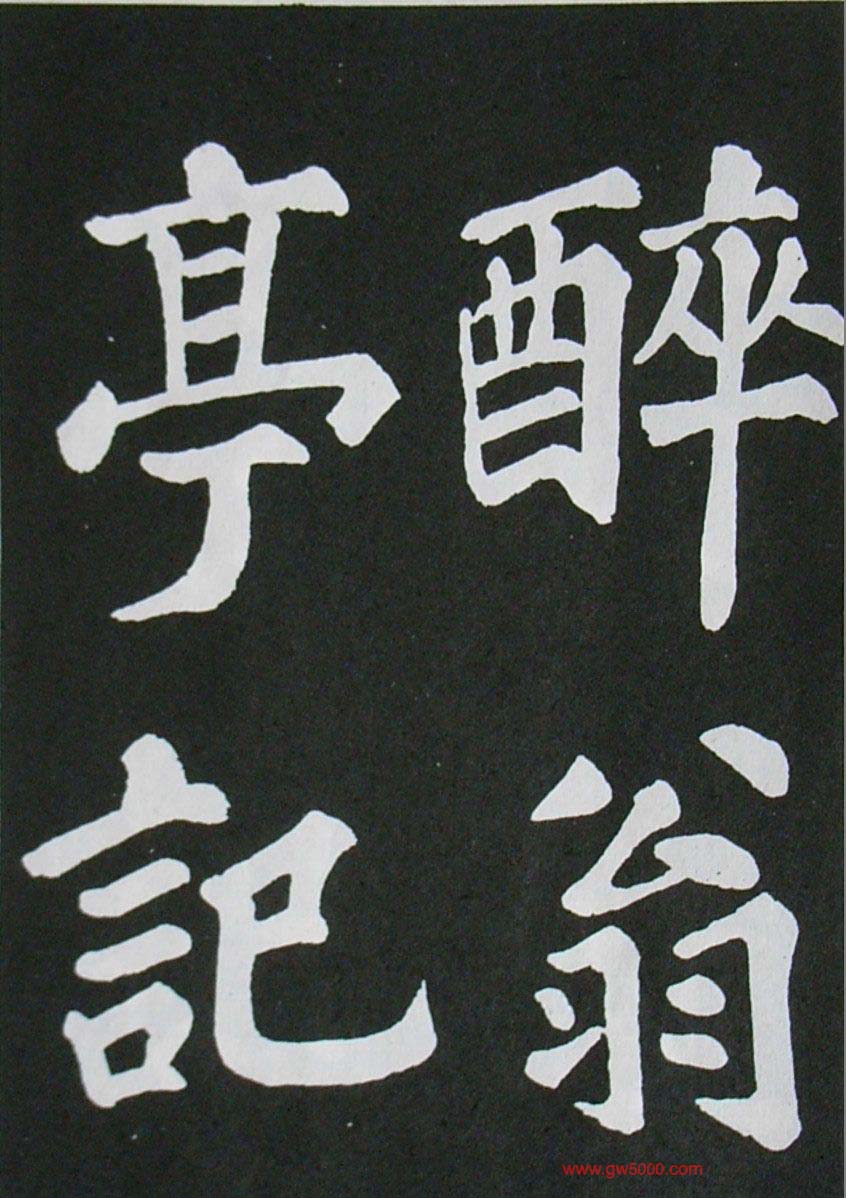 醉翁
亭記
www.gw5000.com